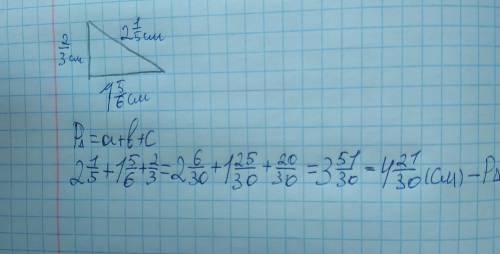 2/3 см
2 1/5 см
1 5/6 см
P△=a+b+c
2 1/5+1 5/6+2/3=2 6/30+1 25/30+20/30=3 51/30=4 21/30(см)-P△